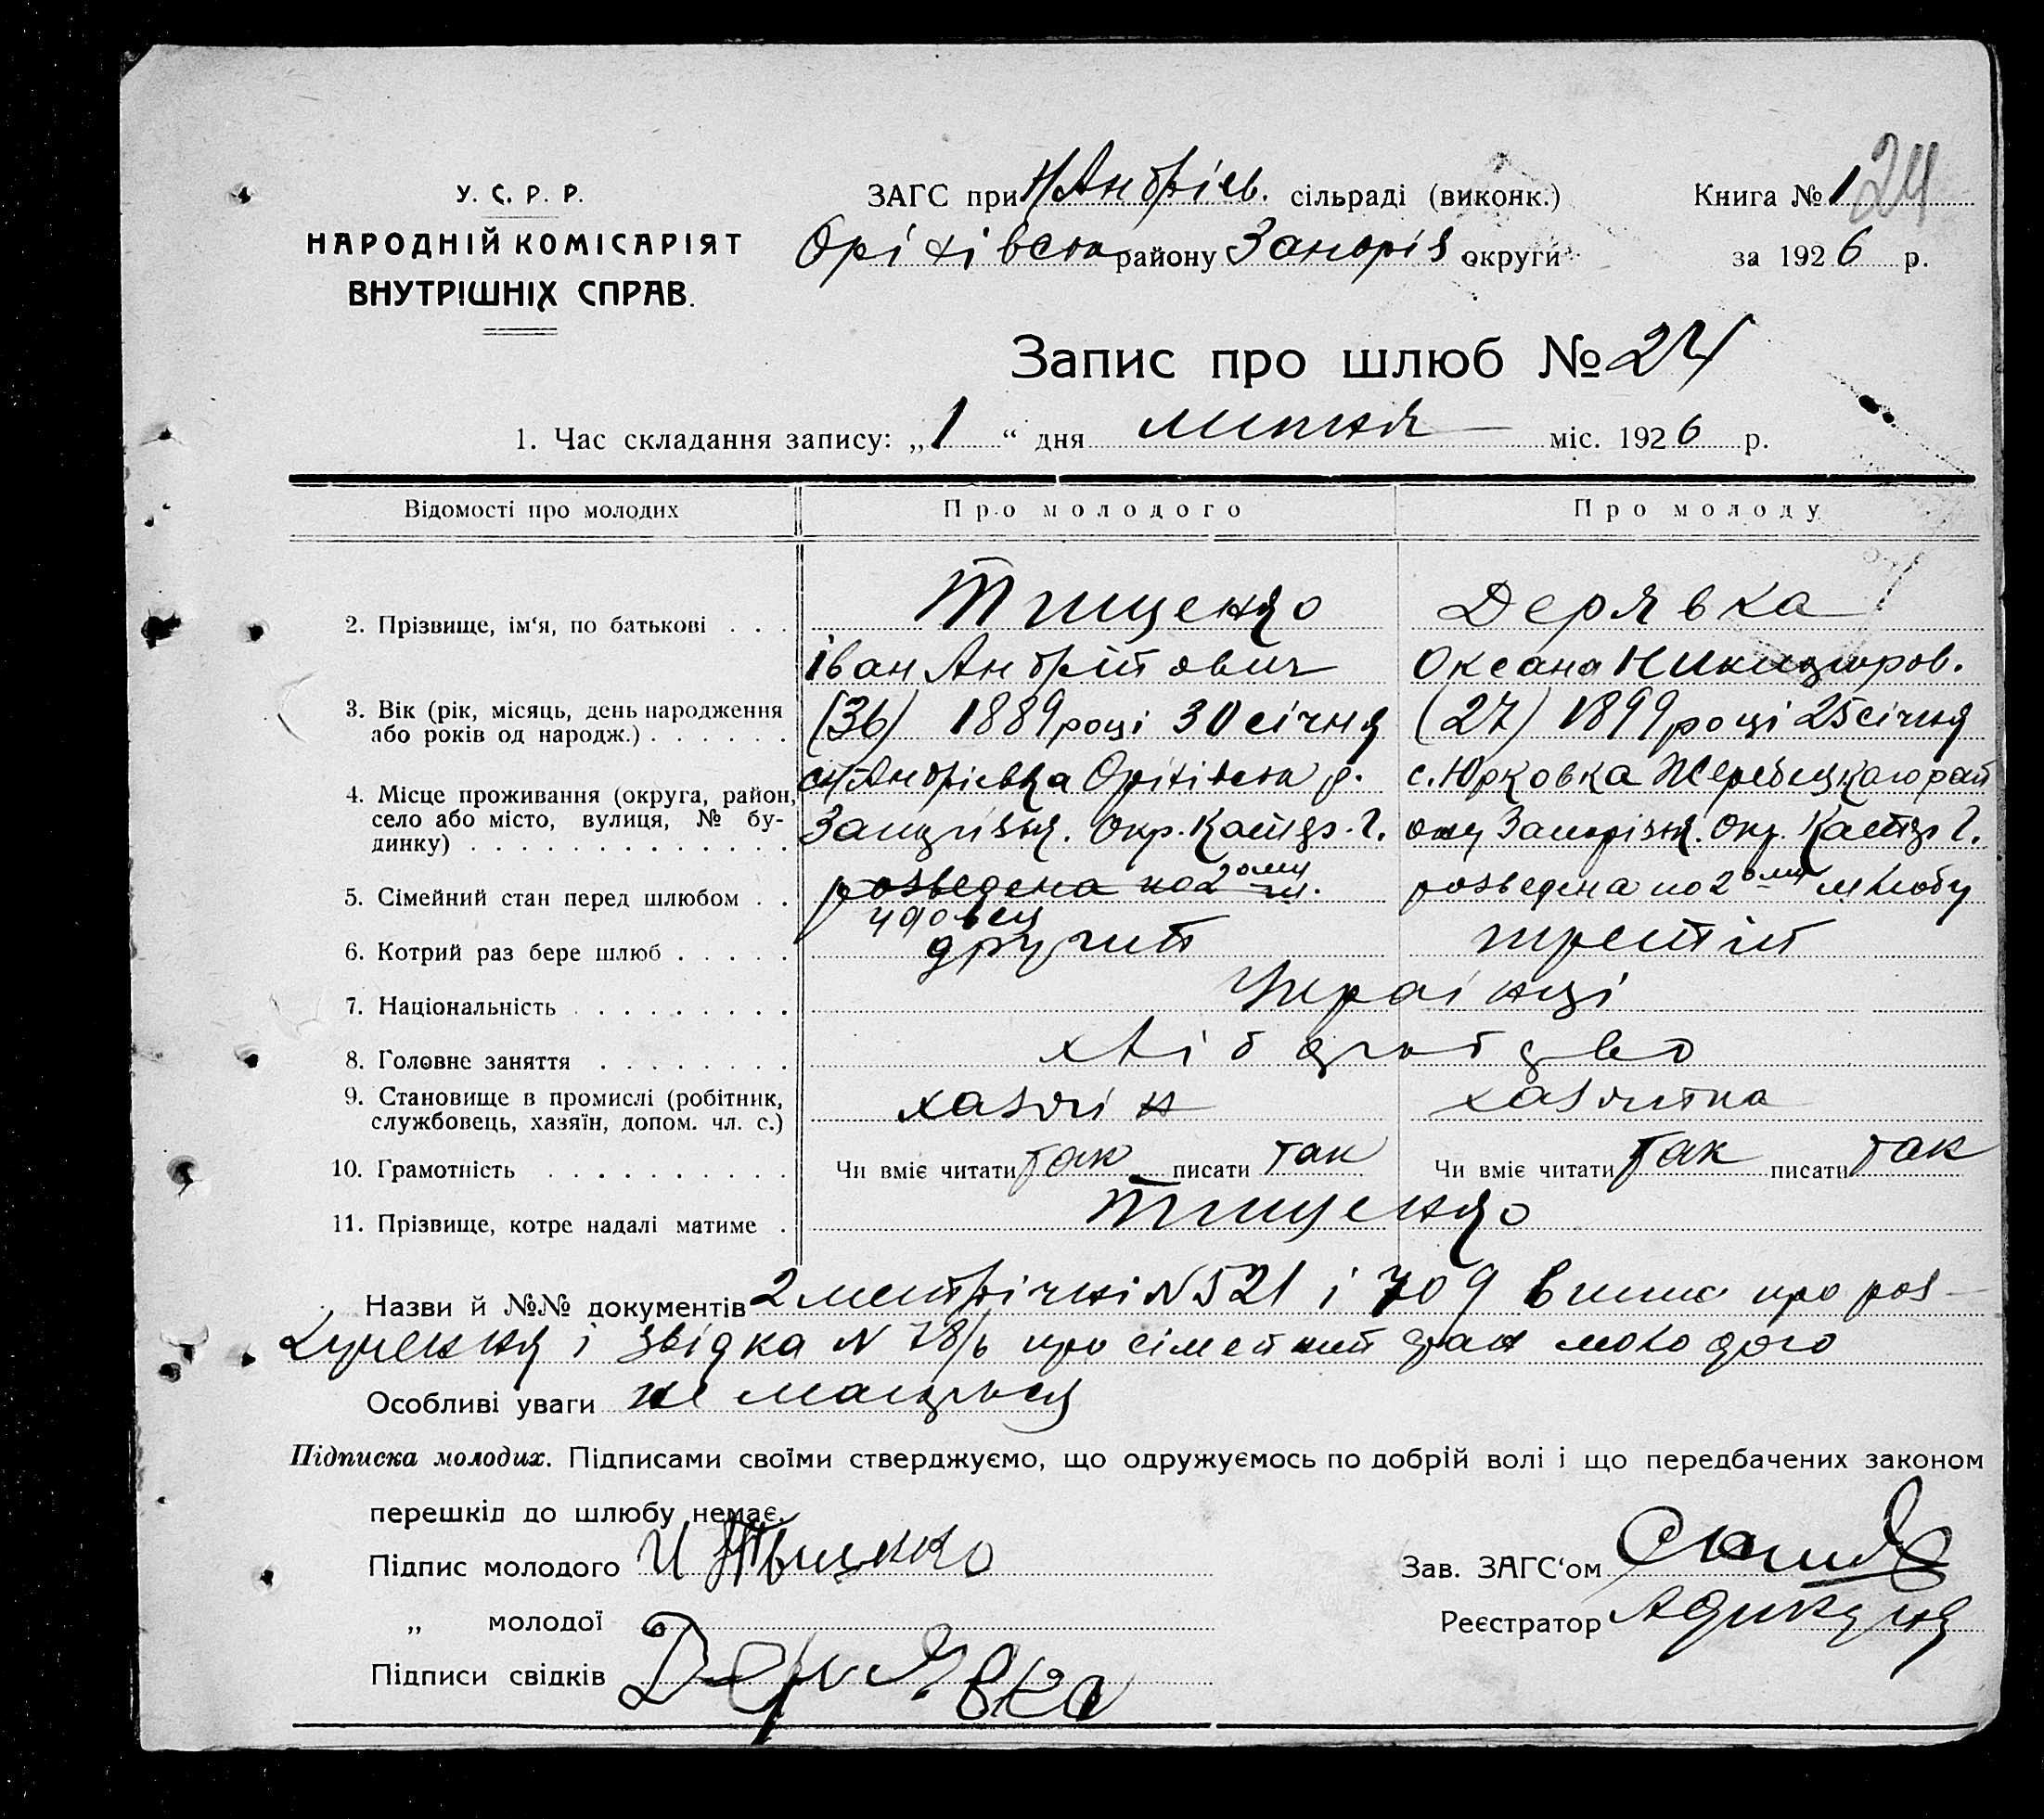 24
У. С. Р. Р.
НАРОДНІЙ КОМІСАРІЯТ
ВНУТРІШНІХ СПРАВ.
ЗАГС при Н/Андріев. сільраді (виконк.) Книга № 1
Оріхівськ району Запоріз округи за 1926 р.
Запис про шлюб № 24
1. Час складання запису: „1“ дня липня міс. 1926 р.
Відомості про молодих Про молодого Про молоду
2. Прізвище, ім'я, по батькові Тищенко Дерявка
Іван Андрійович Оксана Никифоров.
3. Вік (рік, місяць, день народження або років од народж.) (36) 1889 році 30 січня (27) 1899 році 25 січня
4. Місце проживання (округа, район, село або місто, вулиця, № будинку) с. Н/Андрієвка Оріхівськ р. с. Юрковка Жеребецкого рай
Запорізьк. Окр. Запорізьк. Окр.
5. Сімейний стан перед шлюбом розведена по 2ому ш. розведена по 2ому шлюбу
удовец
6. Котрий раз бере шлюб другий третій
7. Національність Українці
8. Головне заняття хліборобство
9. Становище в промислі (робітник, службовець, хазяїн, допом. чл. с.) хазяїн хазяйка
10. Грамотність Чи вміє читати так писати так Чи вміє читати так писати так
11. Прізвище, котре надалі матиме Тищенко
Назви й №№ документів 2 метричні N 521 і 709 випис про роз-
лучення і звідка N 78/6 про сімейний стан молодого
Особливі уваги не мається
Підписка молодих. Підписами своїми стверджуємо, що одружуємось по добрій волі і що передбачених законом
перешкід до шлюбу немає.
Підпис молодого И Тыщенко Зав. ЗАГС'ом
„ молодої Реєстратор
Підписи свідків Дерявка